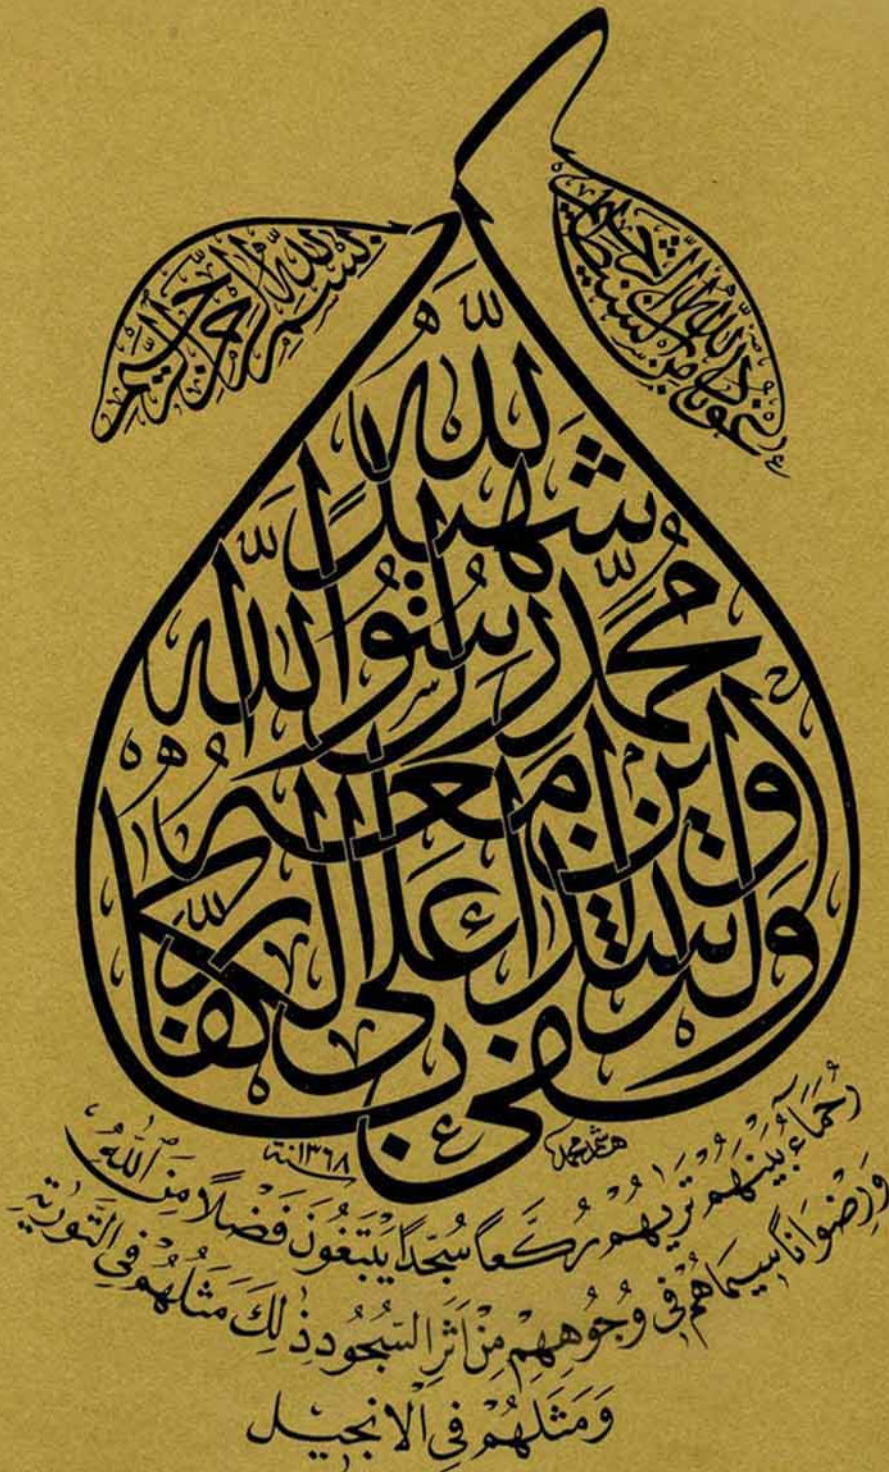 اعوذ بالله من الشيطان الرجيم
بسم الله الرحمن الرحيم
وكفى بالله
شهيدًا
محمد رسول الله
والذين معه
اشداء على الكفار
هاشم محمد
سنة ١٣٦٨
رُحَمَاءُ بَيْنَهُمْ تَرٰيهُمْ رُكَّعاً سُجَّدًا يَبْتَغُونَ فَضْلًا مِنَ اللّٰهِ
وَرِضْوَاناً سِيمَاهُمْ فِى وُجُوهِهِمْ مِنْ اَثَرِ السُّجُودِ ذٰلِكَ مَثَلُهُمْ فِى التَّوْرٰيةِ
وَمَثَلُهُمْ فِى الْاِنْجِيلِ